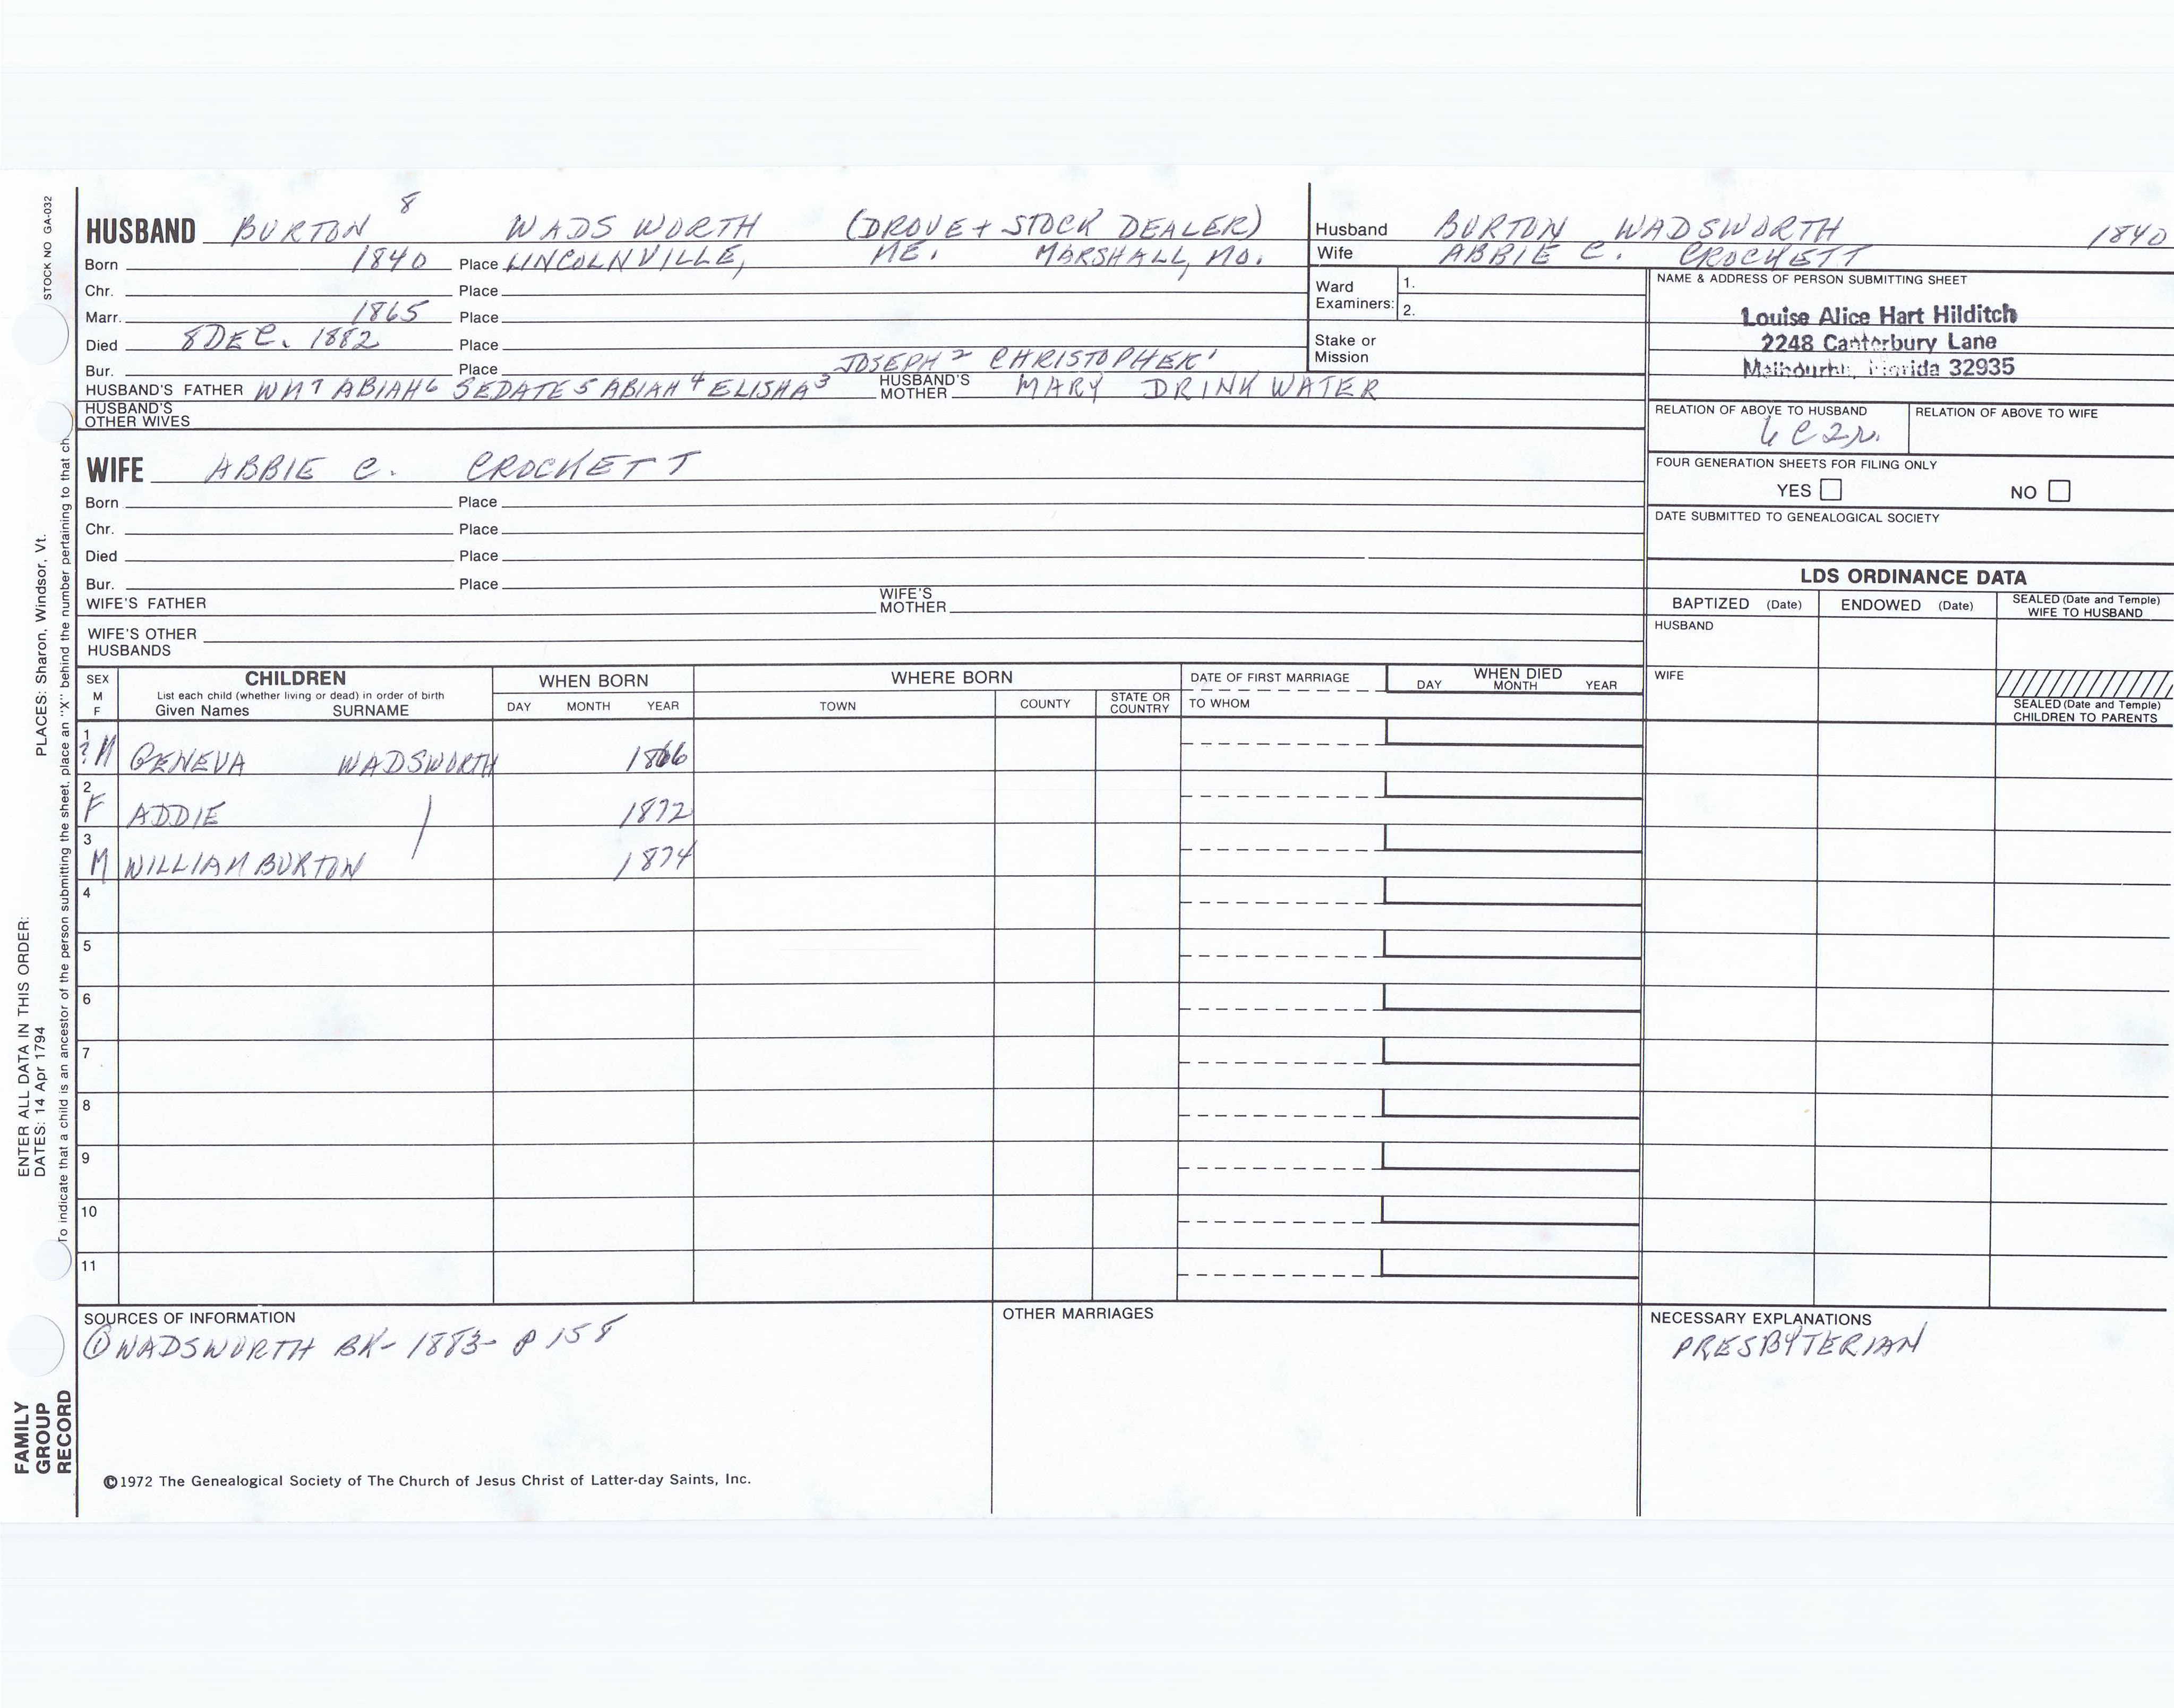 STOCK NO GA-032
HUSBAND BURTON 8 WADSWORTH (DROVE + STOCK DEALER)
Born 1840 Place LINCOLNVILLE, ME. MARSHALL, MO.
Chr. Place
Marr. 1865 Place
Died 8 DEC. 1882 Place
Bur. Place JOSEPH 2 CHRISTOPHER 1
HUSBAND'S FATHER WM 7 ABIAH 6 SEDATE 5 ABIAH 4 ELISHA 3 HUSBAND'S MOTHER MARY DRINKWATER
HUSBAND'S OTHER WIVES
Husband BURTON WADSWORTH 1840
Wife ABBIE C. CROCKETT
Ward Examiners: 1.
2.
Stake or Mission
NAME & ADDRESS OF PERSON SUBMITTING SHEET
Louise Alice Hart Hilditch
2248 Canterbury Lane
Melbourne, Florida 32935
RELATION OF ABOVE TO HUSBAND RELATION OF ABOVE TO WIFE
6C2R.
FOUR GENERATION SHEETS FOR FILING ONLY
YES NO
DATE SUBMITTED TO GENEALOGICAL SOCIETY
WIFE ABBIE C. CROCKETT
Born Place
Chr. Place
Died Place
Bur. Place
WIFE'S FATHER WIFE'S MOTHER
WIFE'S OTHER HUSBANDS
LDS ORDINANCE DATA
BAPTIZED (Date) ENDOWED (Date) SEALED (Date and Temple) WIFE TO HUSBAND
HUSBAND
WIFE
SEALED (Date and Temple) CHILDREN TO PARENTS
SEX M F
CHILDREN
List each child (whether living or dead) in order of birth
Given Names SURNAME
WHEN BORN
DAY MONTH YEAR
WHERE BORN
TOWN COUNTY STATE OR COUNTRY
DATE OF FIRST MARRIAGE
TO WHOM
WHEN DIED
DAY MONTH YEAR
1 ?M GENEVA WADSWORTH 1866
2 F ADDIE 1872
3 M WILLIAM BURTON 1874
4
5
6
7
8
9
10
11
SOURCES OF INFORMATION
① WADSWORTH BK- 1883- P 158
OTHER MARRIAGES
NECESSARY EXPLANATIONS
PRESBYTERIAN
©1972 The Genealogical Society of The Church of Jesus Christ of Latter-day Saints, Inc.
ENTER ALL DATA IN THIS ORDER:
DATES: 14 Apr 1794 PLACES: Sharon, Windsor, Vt.
To indicate that a child is an ancestor of the person submitting the sheet, place an "X" behind the number pertaining to that ch
FAMILY
GROUP
RECORD